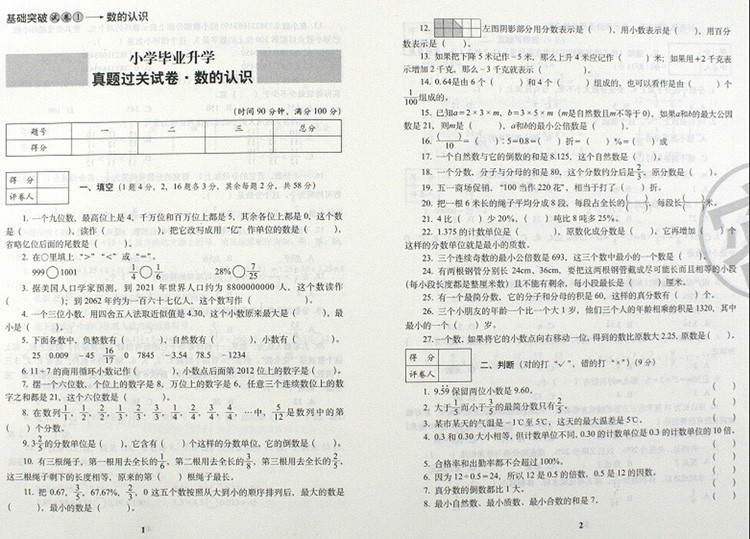 基础突破 试卷① → 数的认识
小学毕业升学
真题过关试卷·数的认识
(时间 90 分钟，满分 100 分)
题号 一 二 三 总分
得分
得分
评卷人
一、填空 (1 题 4 分，2、16 题各 3 分，其余每题 2 分，共 58 分)
1. 一个九位数，最高位上是 4，千万位和百万位上都是 5，其余各位上都是 0，这个数
是( )，读作( )，把它改写成用“亿”作单位的数是( )，
省略亿位后面的尾数是( )。
2. 在○里填上“>”“<”或“=”。
999○1001 1/4○1/6 28%○7/25
3. 据美国人口学家预测，到 2021 年世界人口约为 8800000000 人，这个数读作
( )；到 2062 年约为一百六十七亿人，这个数写作( )。
4. 一个三位小数，用四舍五入法取近似值是 4.30，这个小数原来最大是( )，最
小是( )。
5. 下面各数中，负整数有( )，自然数有( )，小数有( )。
25 0.009 -45 16/17 0 7845 -3.54 78.5 -1234
6. 11÷7 的商用循环小数记作( )，小数点后面第 2012 位上的数字是( )。
7. 摆一个六位数，个位上的数字是 8，万位上的数字是 6，任意三个连续数位上的数
字之和都是 21，这个六位数是( )。
8. 在数列 1/1、1/2、2/2、1/3、2/3、3/3、1/4、2/4、3/4、4/4、…中，5/12是数列中的第
( )个分数。
9. 3 2/5的分数单位是( )，它含有( )个这样的分数单位，它的倒数是( )。
10. 有三根绳子，第一根用去全长的1/6，第二根用去全长的3/8，第三根用去全长的2/5，
这三根绳子剩下的长度相等，原来的第( )根绳子最长。
11. 把 0.67，3/5，67.67%，2/3，0 这五个数按照从大到小的顺序排列后，最大的数是
( )，最小的数是( )。
1
12. 左图阴影部分用分数表示是( )，用小数表示是( )，用百分
数表示是( )。
13. 如果把下降 5 米记作-5 米，那么上升 4 米应记作( )米；如果用+2 千克表
示增加 2 千克，那么-3 千克就表示( )。
14. 0.64是由 6 个( )和 4 个( )组成的，也可以看作是由( )个
1/100组成的。
15. 已知a=2×3×m，b=3×5×m (m是自然数且m不等于 0)，如果a和b的最大公因
数是 21，则m是( )，a和b的最小公倍数是( )。
16. ( )/10=( )∶5=0.8=( )折=( )%=( )成
17. 一个自然数与它的倒数的和是 8.125，这个自然数是( )。
18. 一个分数，分子与分母的和是 80，这个分数约分后是2/5，原分数是( )。
19. 五一商场促销，“100 当作 220 花”，相当于打了( )折。
20. 把一根 6 米长的绳子平均分成 8 段，每段占全长的( )/( )，每段长( )/( )米。
21. 4 比( )少 20%，( )吨比 8 吨多 25%。
22. 1.375 的计数单位是( )，原数化成分数是( )，它再增加( )个
这样的分数单位就是最小的质数。
23. 三个连续奇数的最小公倍数是 693，这三个数中最小的一个数是( )。
24. 有两根钢管分别长 24cm、36cm，要把这两根钢管截成尽可能长而且相等的小段
(每小段长度都是整厘米数)且不能有剩余，每小段最长是( )厘米。
25. 有一个最简分数，它的分子和分母的积是 60，这样的真分数有( )个。
26. 三个小朋友的年龄一个比一个大 1 岁，他们三个人的年龄相乘的积是 1320，其中
最小的一个( )岁。
27. 一个数，如果将它的小数点向右移动一位，得到的数比原数大 2.25，原数是( )。
得分
评卷人
二、判断 (对的打“√”，错的打“×”)(9 分)
1. 9.59保留两位小数是 9.60。 ( )
2. 大于1/5而小于3/5的最简分数只有2/5。 ( )
3. 某市某天的气温是-1℃至 5℃，这天的最大温差是 5℃。 ( )
4. 0.3 和 0.30 大小相等，但计数单位不同，0.30 的计数单位是 0.3 的计数单位的 10 倍。
( )
5. 合格率和出勤率都不会超过 100%。 ( )
6. 因为 12÷0.5=24，所以 12 是 0.5 的倍数，0.5 是 12 的因数。 ( )
7. 真分数的倒数都比 1 大。 ( )
8. 最小自然数、最小质数、最小合数的和是 7。 ( )
2